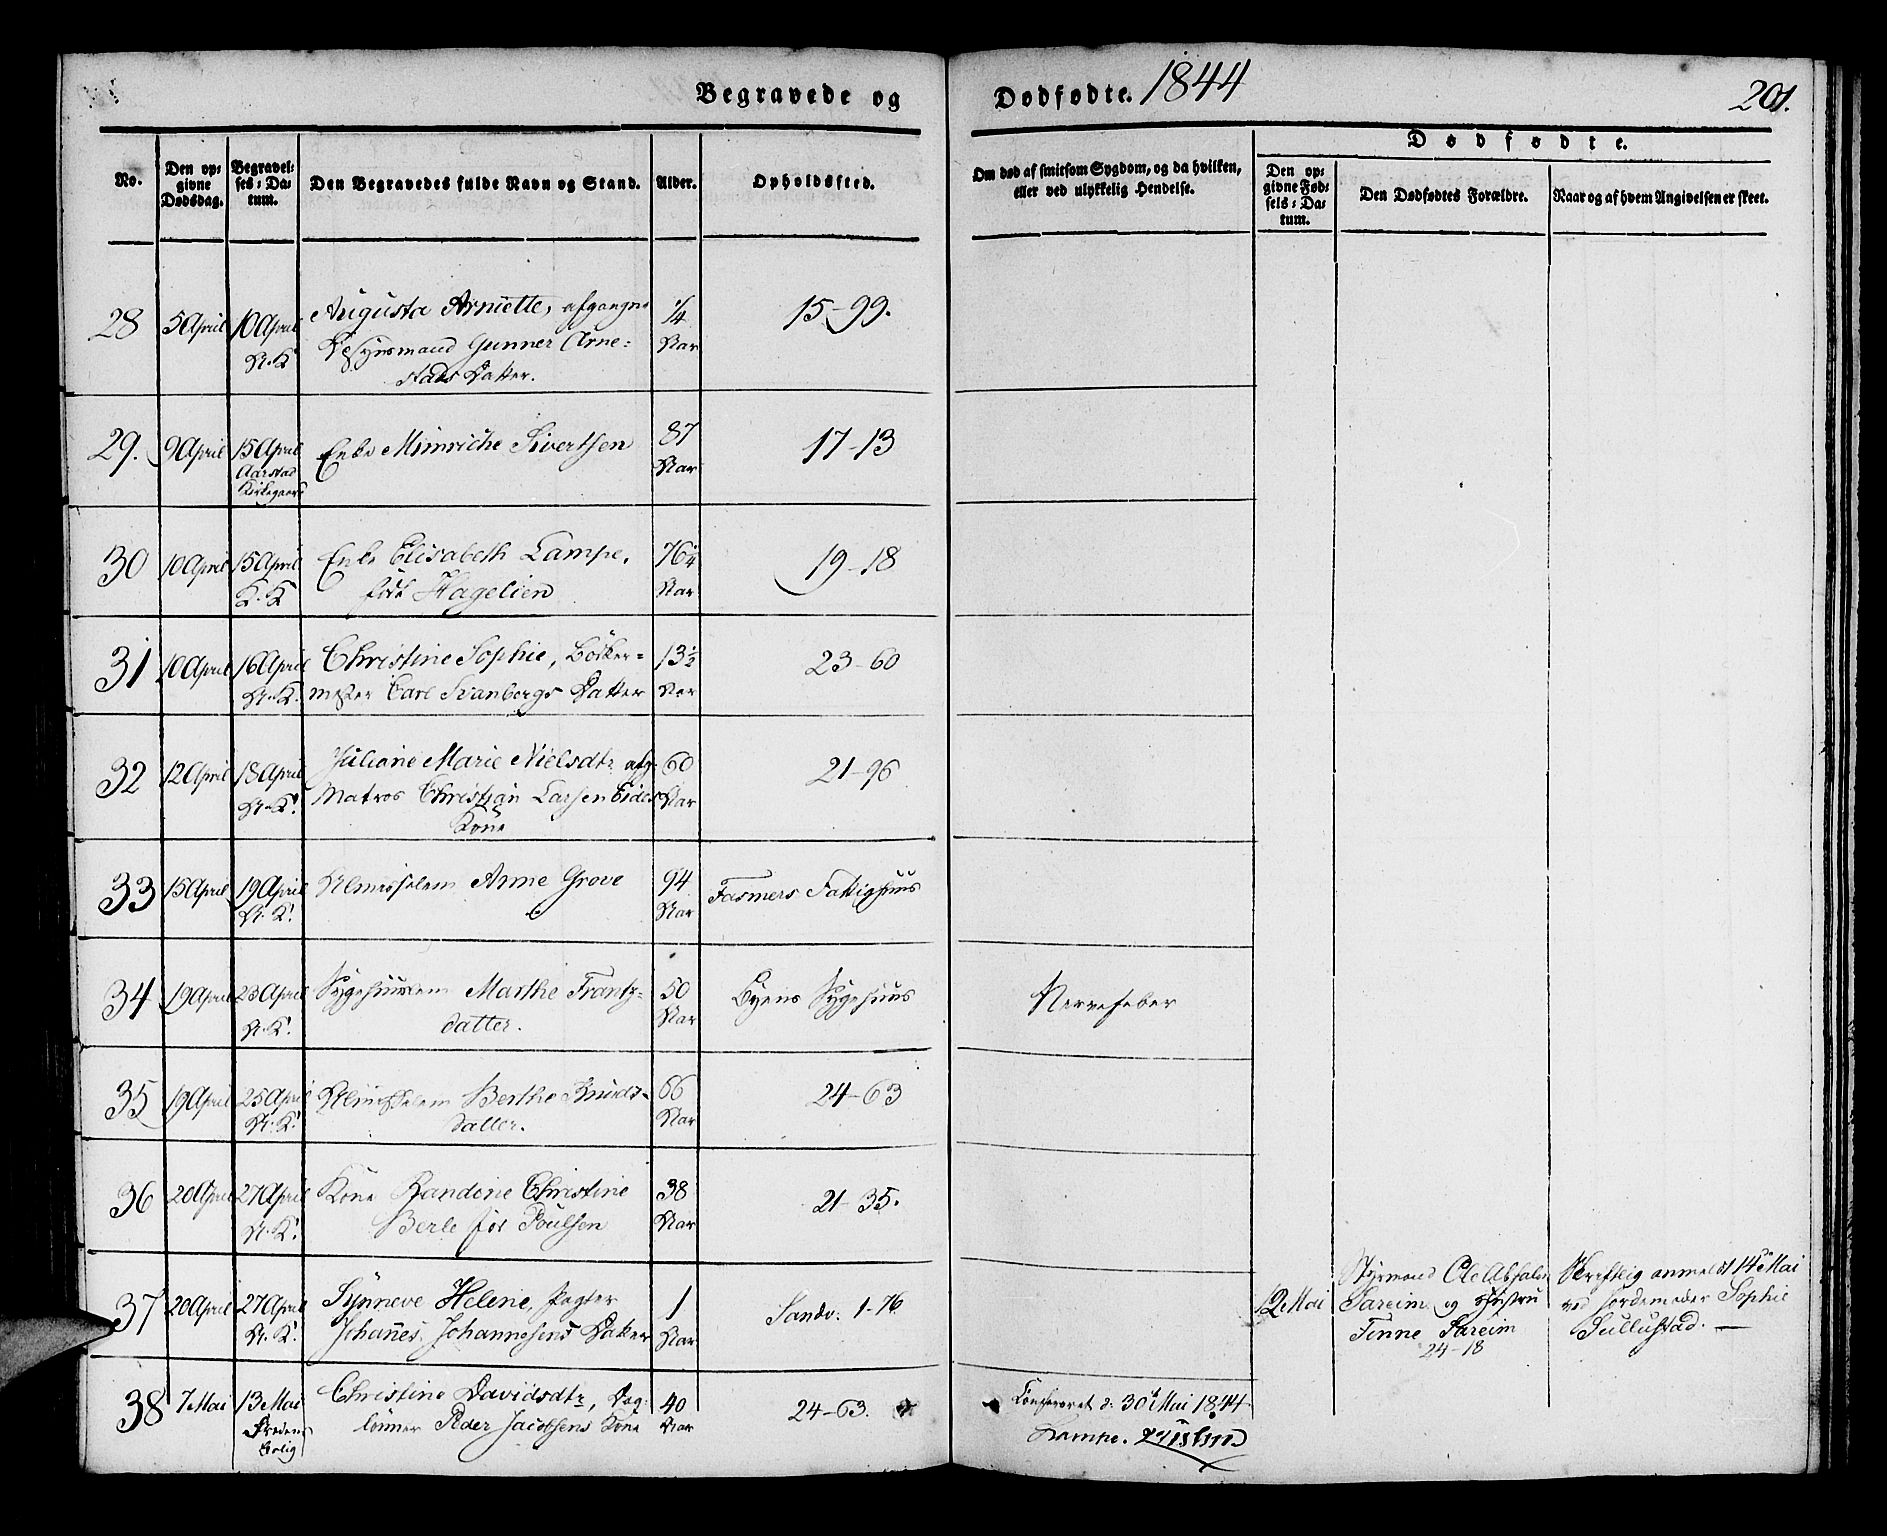 Begravede og Dødfødte. 1844
201.
No.
Den opgivne Dødsdag.
Begravelses-Datum.
Den Begravedes fulde Navn og Stand.
Alder.
Opholdssted.
Om død af smitsom Sygdom, og da hvilken,
eller ved ulykkelig Hendelse.
Dødfødte.
Den opgivne Fødsels-Datum.
Den Dødfødtes Forældre.
Naar og af hvem Angivelsen er skeet.
28 5 April 10 April Augusta Arnette, afgangne 1/4 15-99.
K.K Gunner Arne- Aar
stads Datter.
29. 9 April 15 April Enke Minriche Sivertsen 87 17-13
Aarstad Aar
Kirkegaard
30 10 April 15 April Enke Elisabeth Lampe, 76 1/4 19-18
K.K født Hagelien Aar
31 10 April 16 April Christine Sophie, Bødker- 13 1/2 23-60
K.K. mester Carl Svanbergs Datter Aar
32 12 April 18 April Juliane Marie Nielsdtr afg: 60 21-96
K.K. Matros Christian Larsen Eides Aar
Kone
33 15 April 19 April Almisselem Anne Grove 94 Fasmers Fattighuus
K.K. Aar
34 19 April 23 April Sygehuuslem Marthe Frantz- 50 Byens Sygehuus Nervefeber
K.K. datter. Aar
35 19 April 25 April Almisselem Berthe Knuds- 66 24-63
K.K. datter. Aar
36 20 April 27 April Kone Randine Christine 38 21-35.
K.K. Berle fød Poulsen Aar
37 20 April 27 April Synneve Helene, Pagter 1 Sandv: 1-76
K.K. Johanes Johannesens Datter Aar
12 Mai Styrmand Ole Absalon
Sareim og Hustru
Tinne Sareim
24-18
Skriftlig anmeldt 14de Mai
ved Jordemoder Sophie
Sullustad.
38 7 Mai 13 Mai Christine Davidsdtr, Dag- 40 24-63.
Fredens lønner Peder Jacobsens Kone Aar
Bolig
Confereret d: 30t Mai 1844
Lampe.